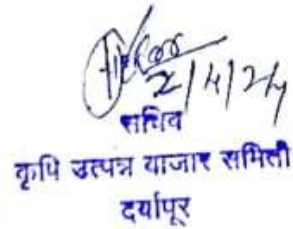 2/4/24
सचिव
कृषि उत्पन्न बाजार समिती
दर्यापूर